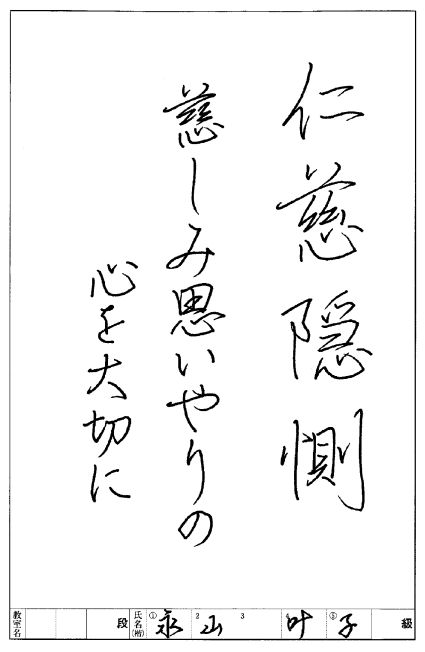 仁慈隠惻
慈しみ思いやりの
心を大切に
教室名 段 氏名(楷) ①永 2山 3 4叶 ⑤子 級